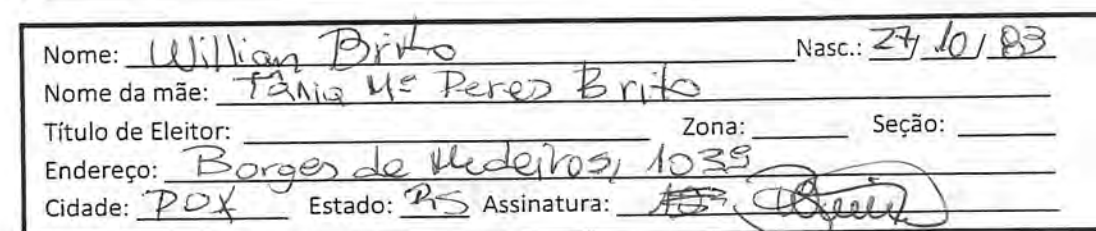 Nome: Willian Brito Nasc.: 27/10/83
Nome da mãe: Tânia Mª Peres Brito
Título de Eleitor: Zona: Seção:
Endereço: Borges de Medeiros, 1039
Cidade: POX Estado: RS Assinatura: